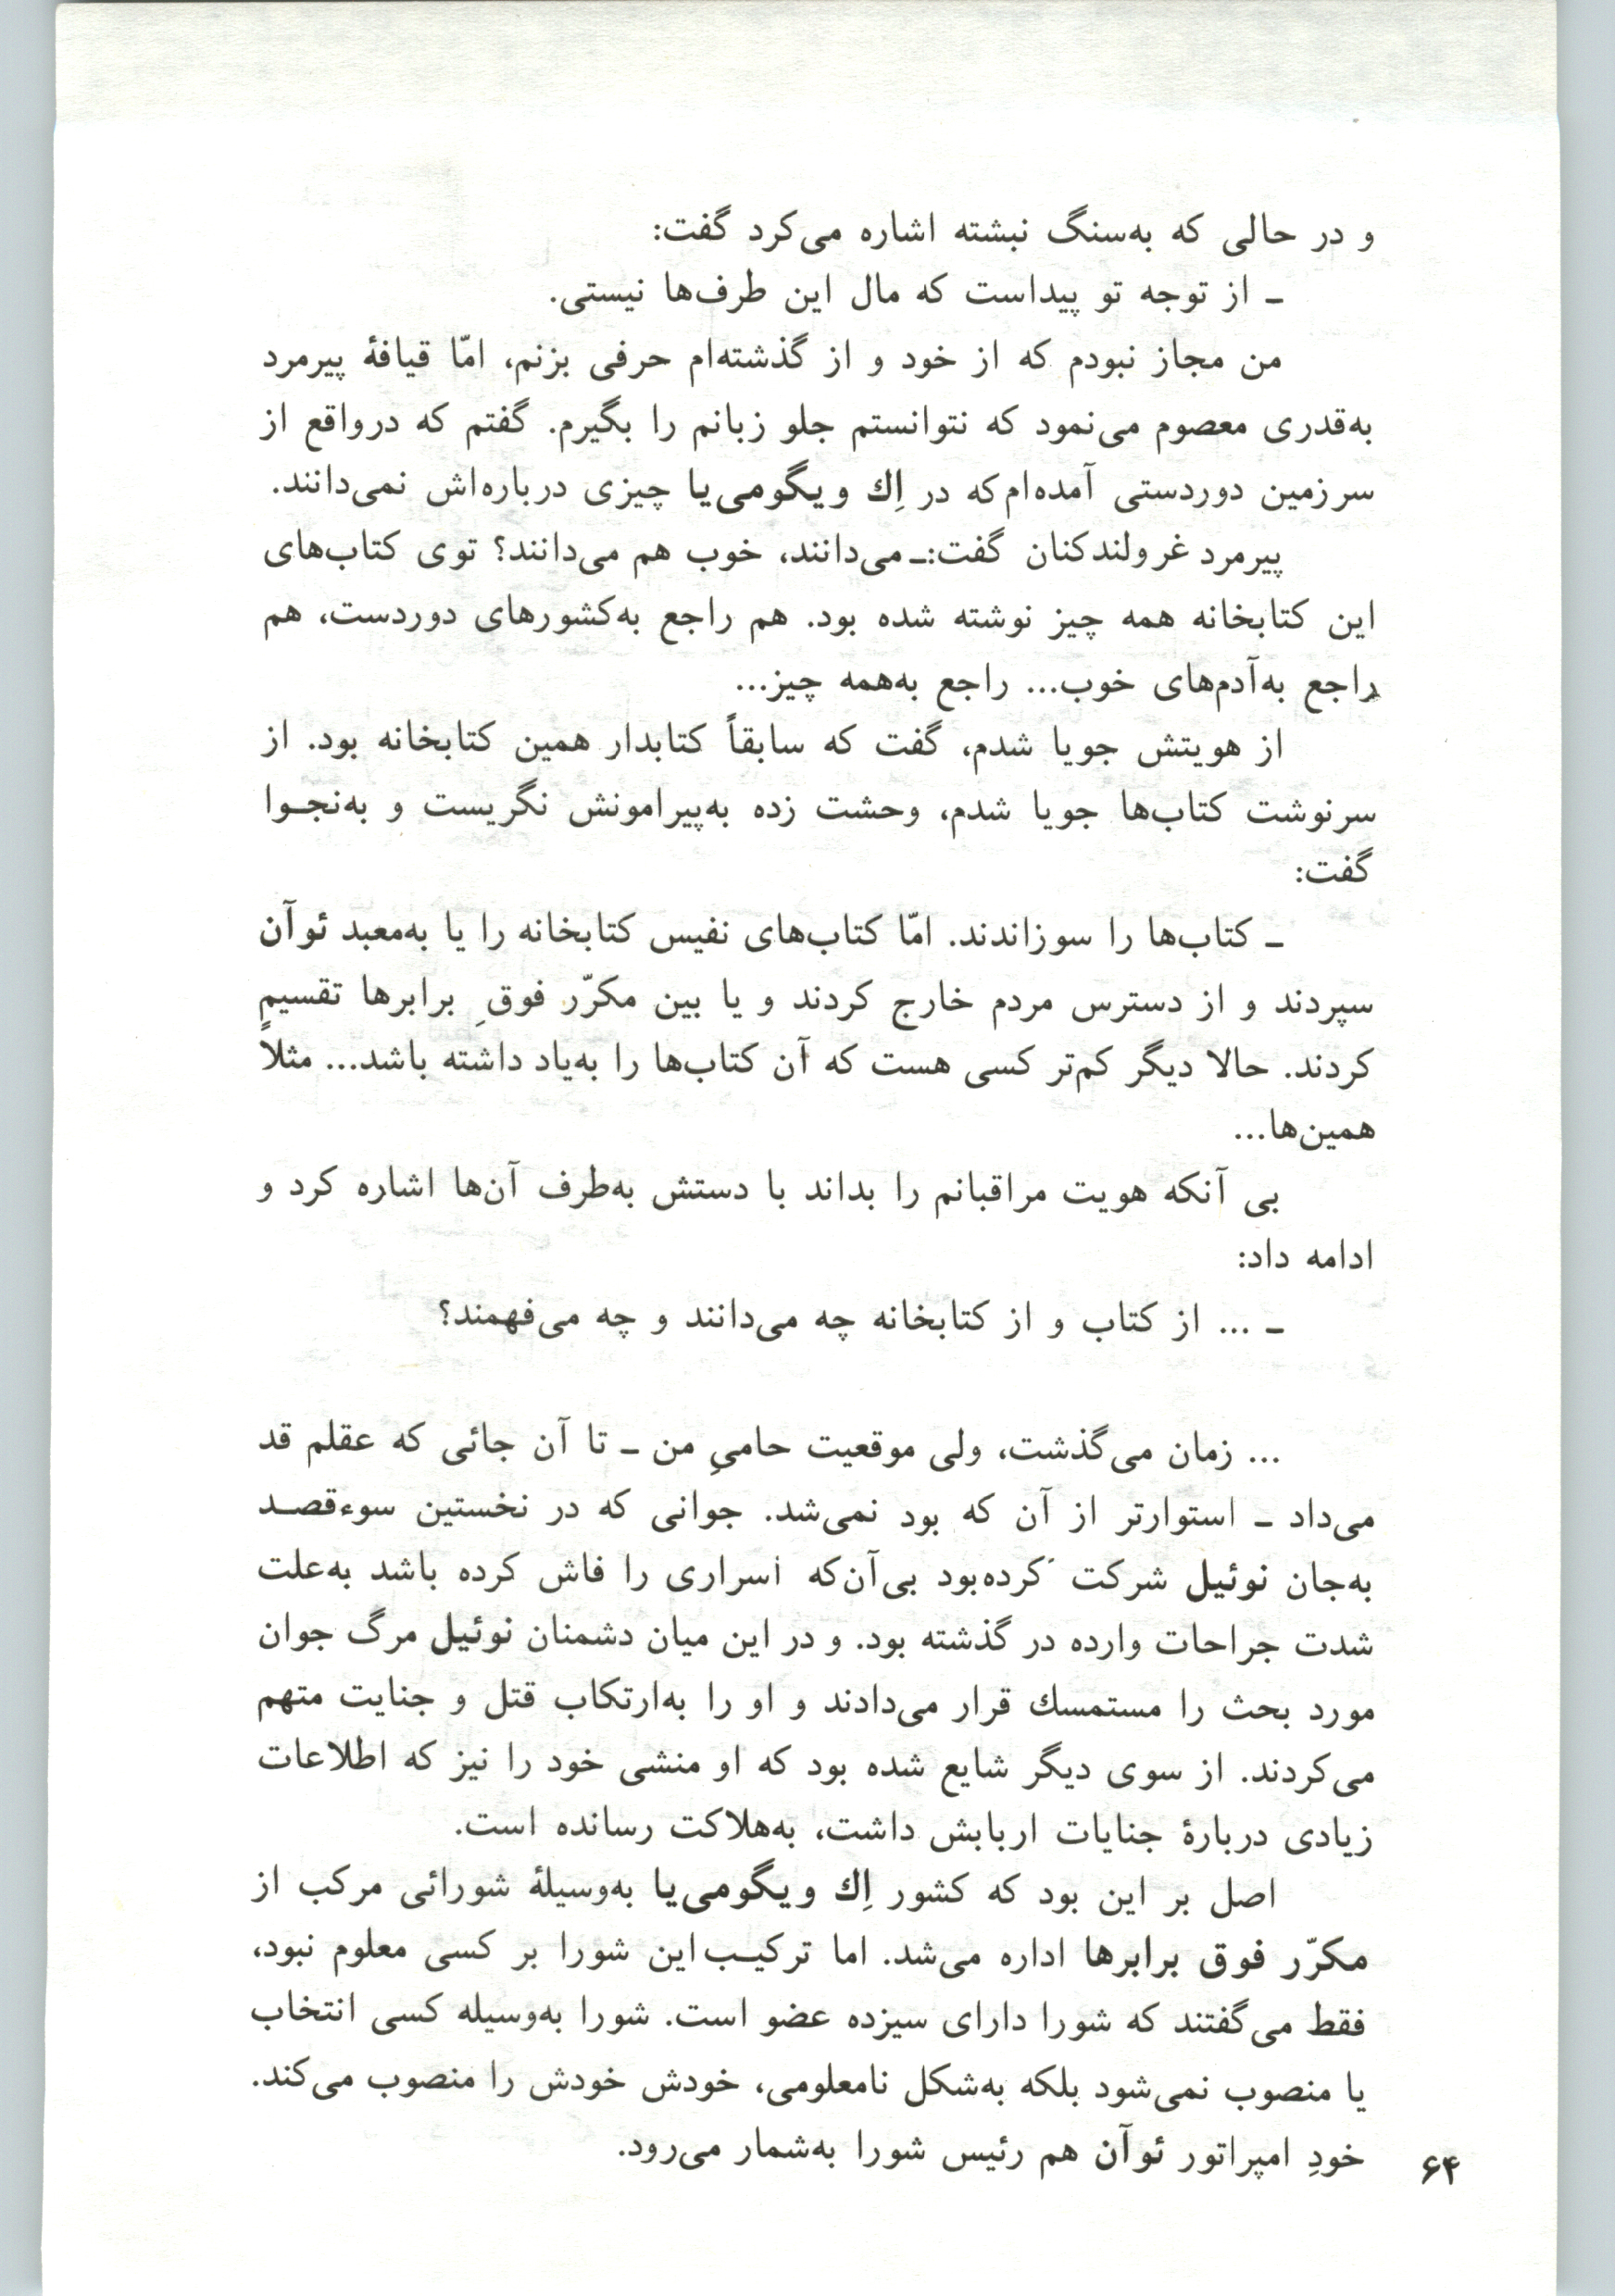 و در حالی که به‌سنگ نبشته اشاره می‌کرد گفت:
ـ از توجه تو پیداست که مال این طرف‌ها نیستی.
من مجاز نبودم که از خود و از گذشته‌ام حرفی بزنم، امّا قیافهٔ پیرمرد
به‌قدری معصوم می‌نمود که نتوانستم جلو زبانم را بگیرم. گفتم که درواقع از
سرزمین دوردستی آمده‌ام که در اِك ویگومی‌یا چیزی درباره‌اش نمی‌دانند.
پیرمرد غرولندکنان گفت:ـ می‌دانند، خوب هم می‌دانند؟ توی کتاب‌های
این کتابخانه همه چیز نوشته شده بود. هم راجع به‌کشورهای دوردست، هم
راجع به‌آدم‌های خوب... راجع به‌همه چیز...
از هویتش جویا شدم، گفت که سابقاً کتابدار همین کتابخانه بود. از
سرنوشت کتاب‌ها جویا شدم، وحشت زده به‌پیرامونش نگریست و به‌نجـوا
گفت:
ـ کتاب‌ها را سوزاندند. امّا کتاب‌های نفیس کتابخانه را یا به‌معبد ئوآن
سپردند و از دسترس مردم خارج کردند و یا بین مکرّر فوقِ برابرها تقسیم
کردند. حالا دیگر کم‌تر کسی هست که آن کتاب‌ها را به‌یاد داشته باشد... مثلاً
همین‌ها...
بی آنکه هویت مراقبانم را بداند با دستش به‌طرف آن‌ها اشاره کرد و
ادامه داد:
ـ ... از کتاب و از کتابخانه چه می‌دانند و چه می‌فهمند؟
... زمان می‌گذشت، ولی موقعیت حامیِ من ـ تا آن جائی که عقلم قد
می‌داد ـ استوارتر از آن که بود نمی‌شد. جوانی که در نخستین سوءقصـد
به‌جان نوئیل شرکت کرده‌بود بی‌آن‌که اسراری را فاش کرده باشد به‌علت
شدت جراحات وارده در گذشته بود. و در این میان دشمنان نوئیل مرگ جوان
مورد بحث را مستمسك قرار می‌دادند و او را به‌ارتکاب قتل و جنایت متهم
می‌کردند. از سوی دیگر شایع شده بود که او منشی خود را نیز که اطلاعات
زیادی دربارهٔ جنایات اربابش داشت، به‌هلاکت رسانده است.
اصل بر این بود که کشور اِك ویگومی‌یا به‌وسیلهٔ شورائی مرکب از
مکرّر فوق برابرها اداره می‌شد. اما ترکیـب این شورا بر کسی معلوم نبود،
فقط می‌گفتند که شورا دارای سیزده عضو است. شورا به‌وسیله کسی انتخاب
یا منصوب نمی‌شود بلکه به‌شکل نامعلومی، خودش خودش را منصوب می‌کند.
خودِ امپراتور ئوآن هم رئیس شورا به‌شمار می‌رود.
۶۴